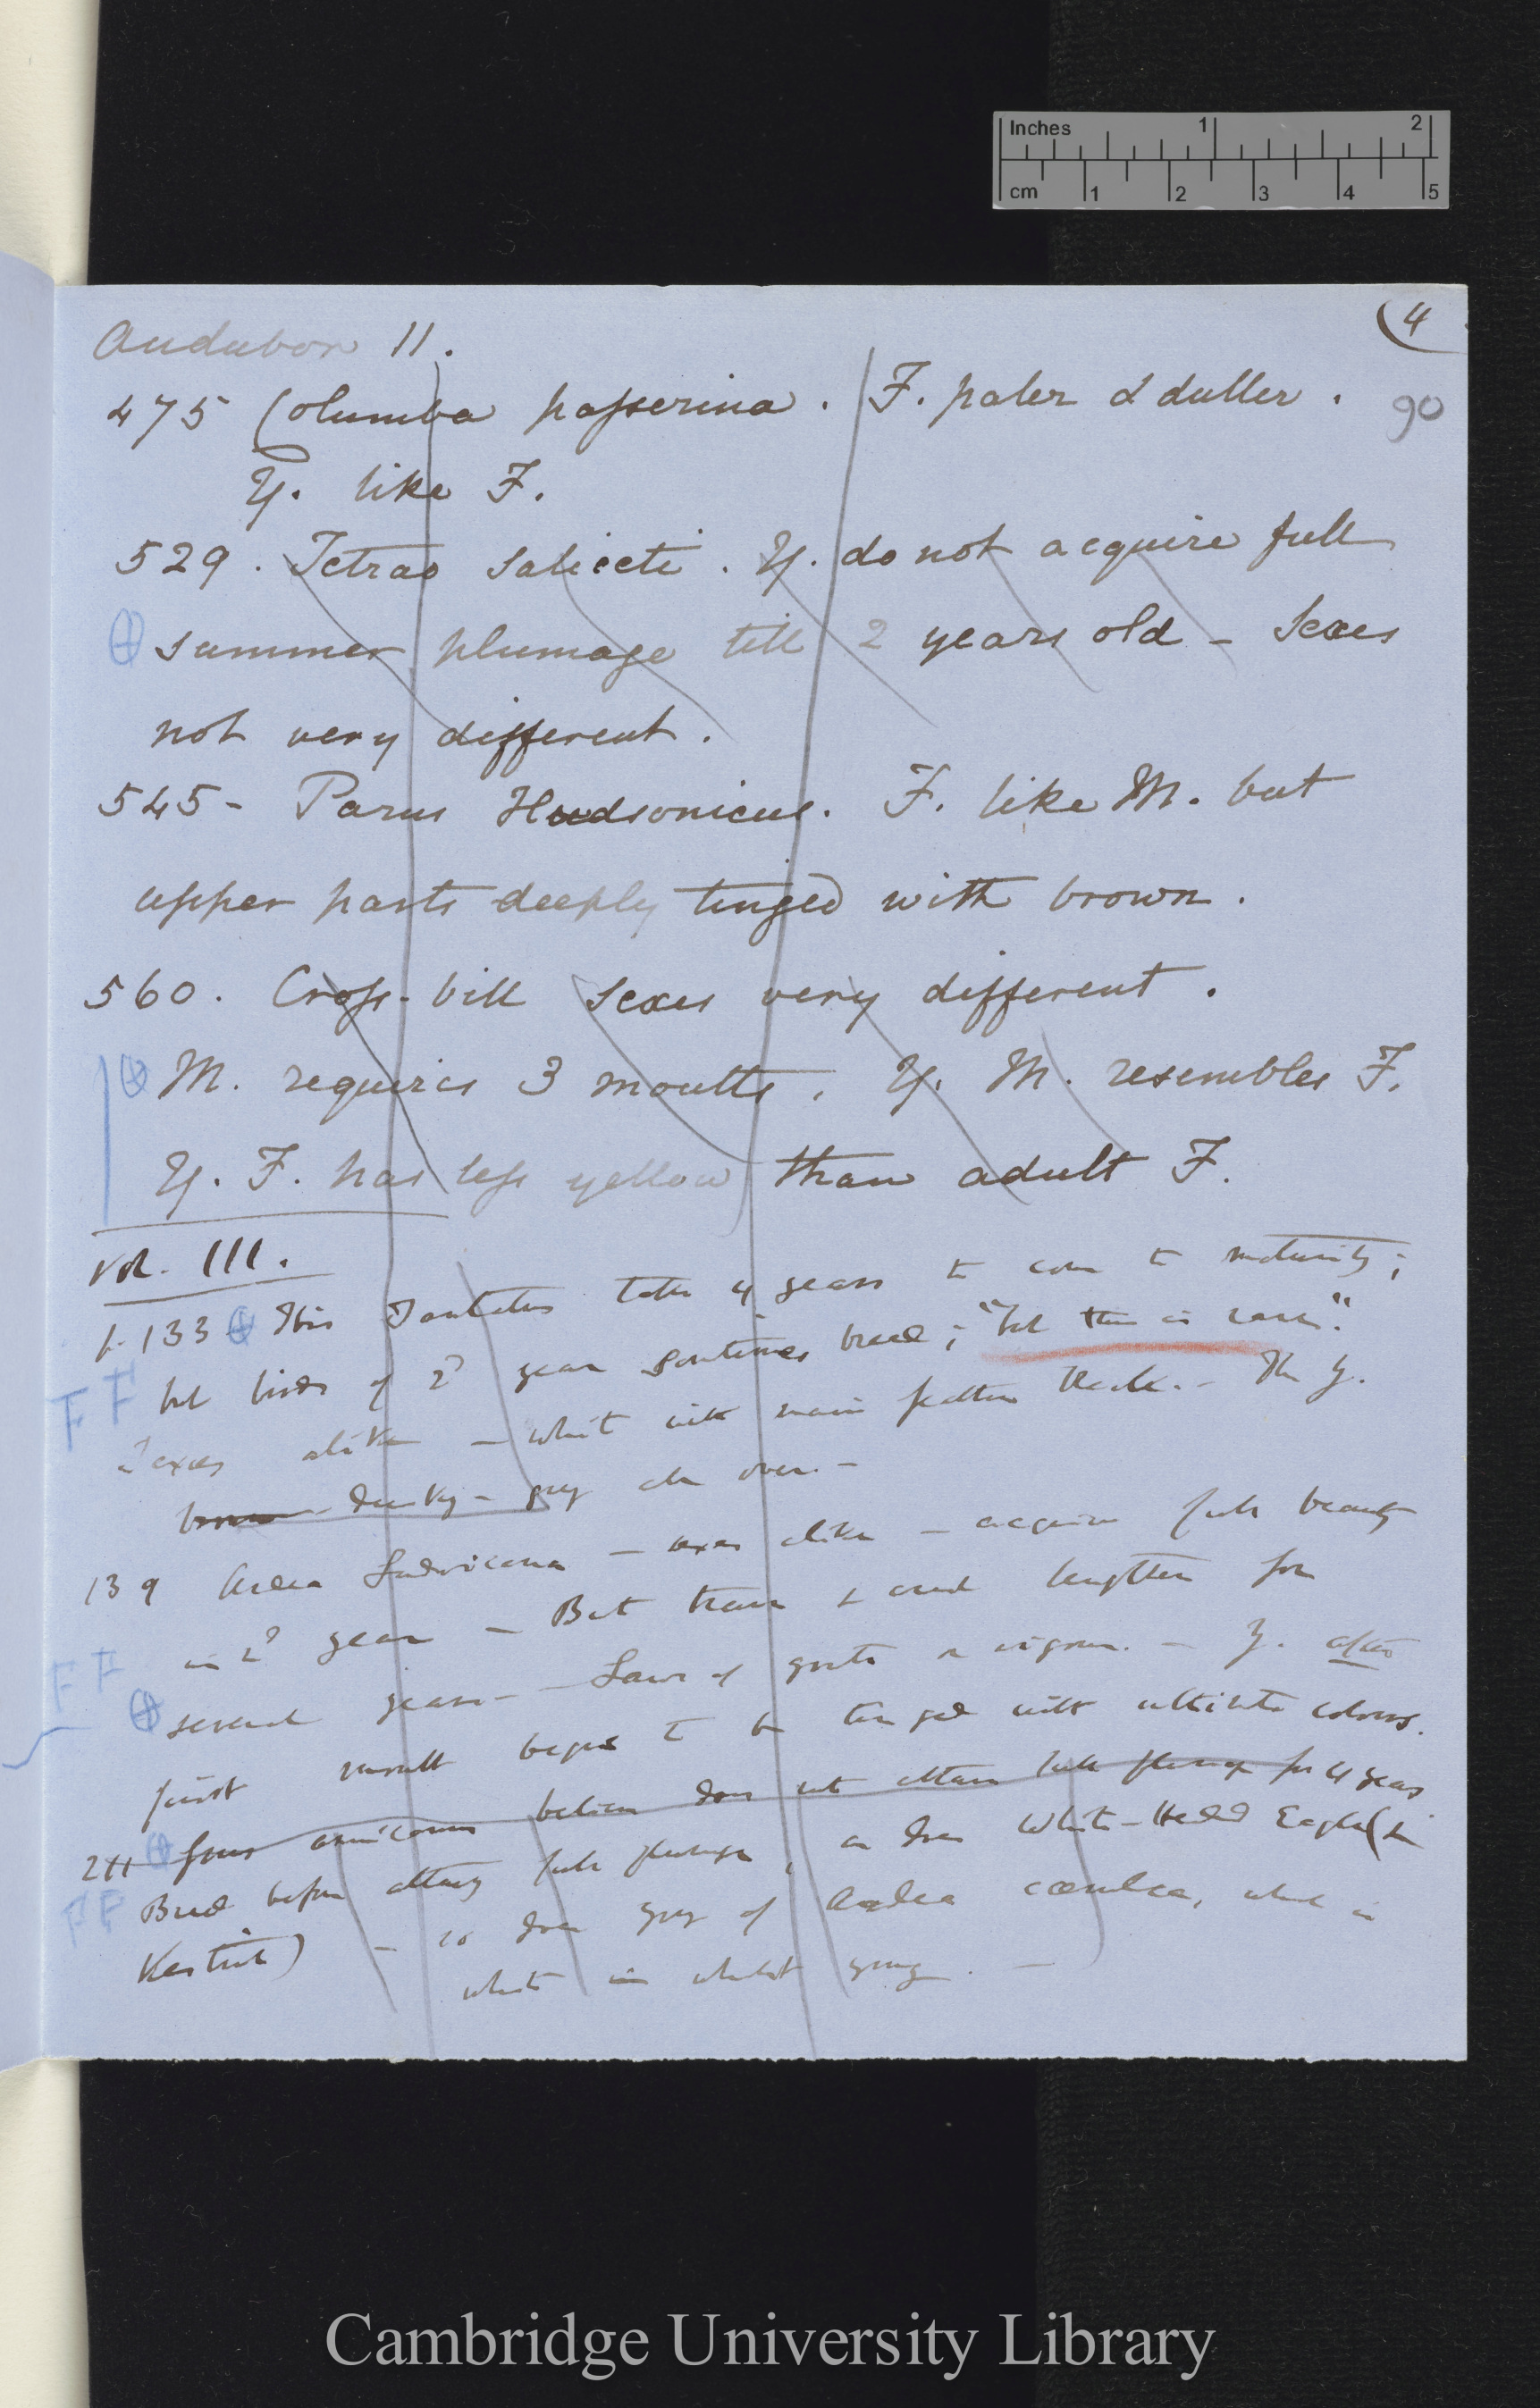 Inches 1 2
cm 1 2 3 4 5
(4
Audubon II.
475 Columba passerina. F. paler & duller.
90
Y. like F.
529. Tetrao saliceti. Y. do not acquire full
summer plumage till 2 years old - Sexes
not very different.
545- Parus Hudsonicus. F. like M. but
upper parts deeply tinged with brown.
560. Cross-bill Sexes very different.
M. requires 3 moults. Y. M. resembles F.
Y. F. has less yellow than adult F.
Vol. III.
p. 133 Ibis Tantalus takes 4 years to come to maturity;
F F but birds of 2d year sometimes breed; "but this is rare".
Sexes alike - white with main feathers black. - The y.
brown dusky-grey all over. -
139 Ardea Ludoviciana - sexes alike - acquire full beauty
in 2d year - But train & crest lengthen for
F F several years - Laws of growth & vigour. - Y. after
first moult begins to be tinged with ultimate colours.
211 Grus americanus believes does not attain full plumage for 4 years
F F Breed before attaining full plumage, as does White-Headed Eagle (&
Kestrel) - so does grey of Ardea cœrulea, which is
white in whilst young. -
Cambridge University Library